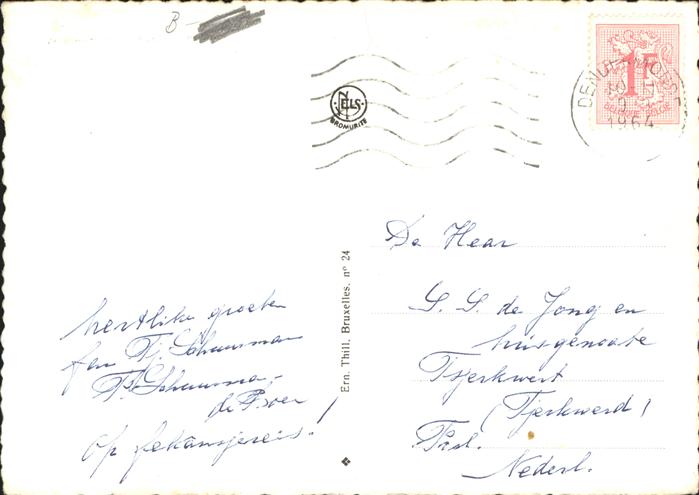 B-
NELS
BROMURITE
1F
BELGIE-BELGIQUE
1964
Ern. Thill, Bruxelles. n° 24
De Hear
S. S. de Jong en
húsgenoate
Tsjerkwert
(Tjerkwerd)
Nederl.
hertlike groeten
fan Tj. Schuurman
Schuurman-
de Boer
op fekânsjereis!